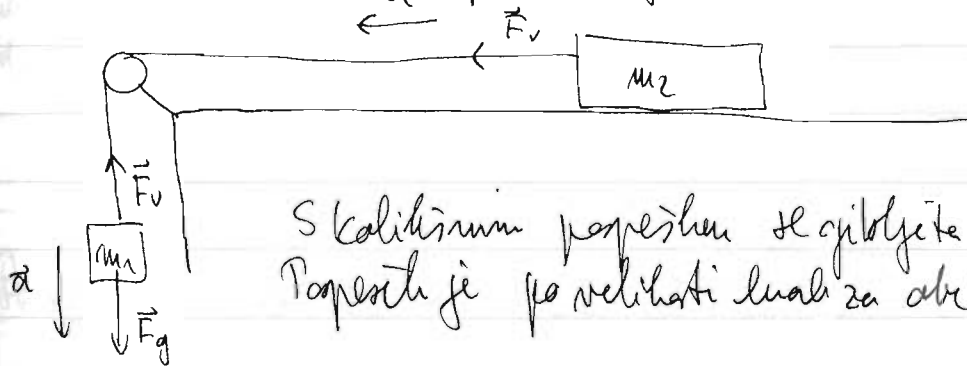 F⃗v
m2
F⃗v
m1
a⃗
F⃗g
S kolikšnim pospeškom se gibljeta
Pospešek je po velikosti enak za obe